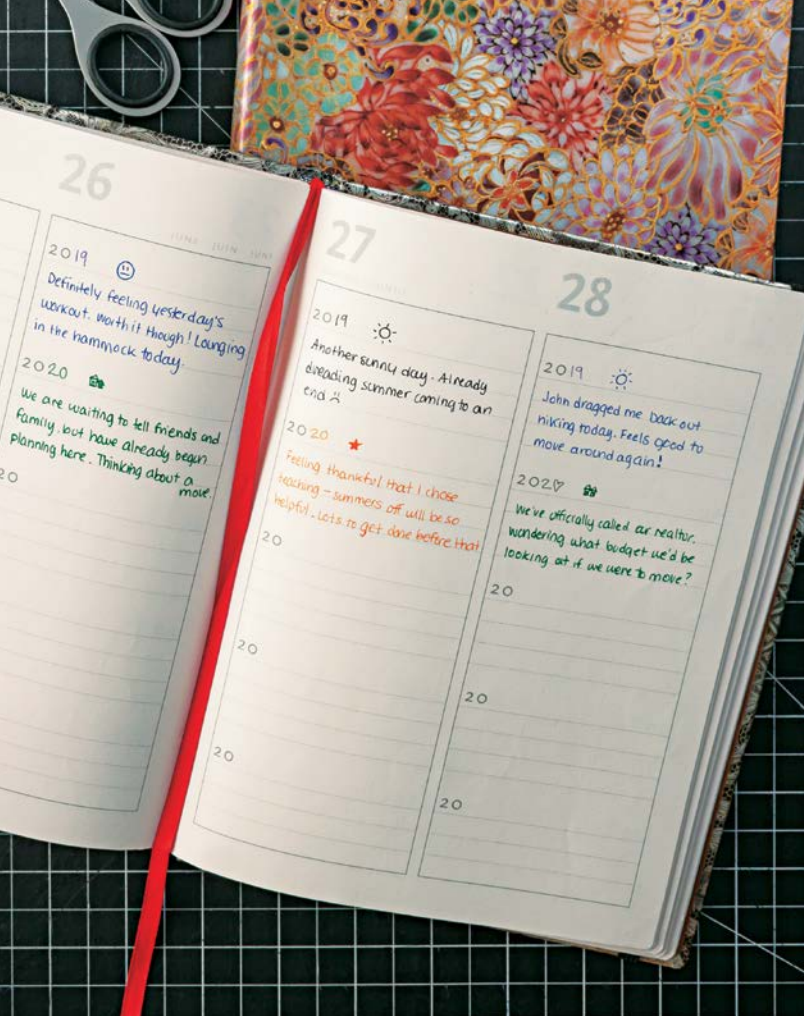 26
JUNE JUIN JUNI
2019
Definitely feeling yesterday's
workout. Worth it though! Lounging
in the hammock today.
2020
We are waiting to tell friends and
family, but have already begun
planning here. Thinking about a
move.
20
27
2019
Another sunny day. Already
dreading summer coming to an
end
2020
Feeling thankful that I chose
teaching – summers off will be so
helpful. Lots to get done before that
20
20
20
28
2019
John dragged me back out
hiking today. Feels good to
move around again!
2020
We've officially called our realtor.
Wondering what budget we'd be
looking at if we were to move?
20
20
20